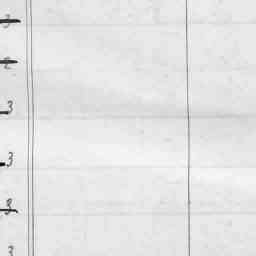 3
2
3
3
3
3